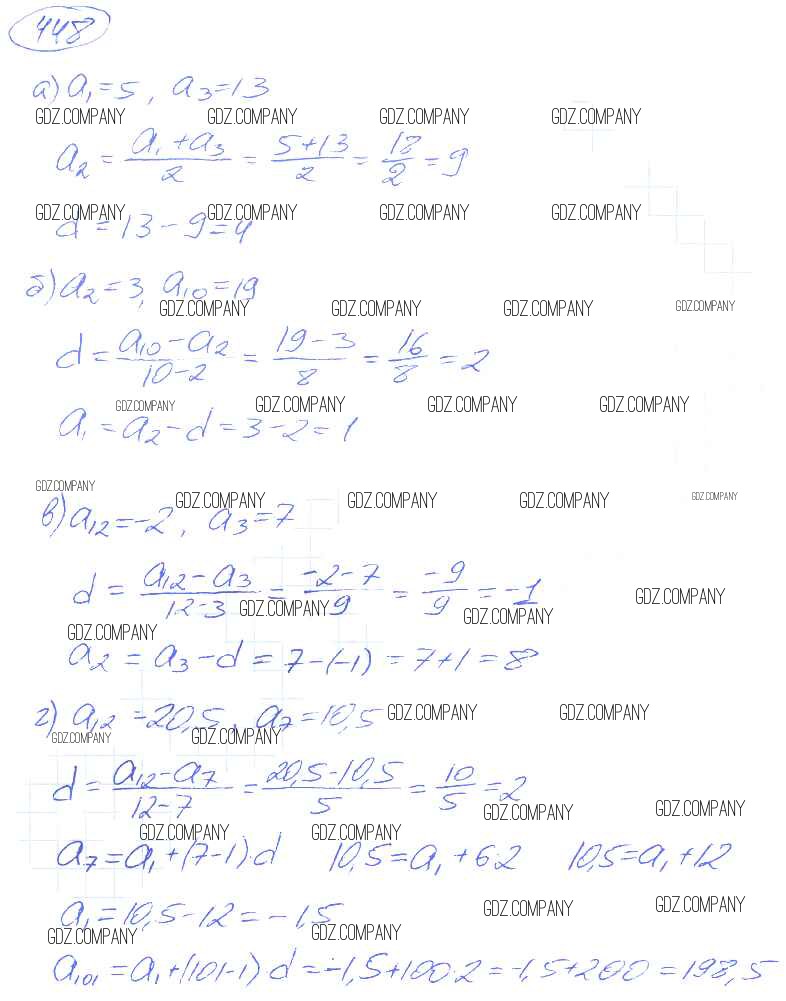 448
а) a₁ = 5, a₃ = 13
GDZ.COMPANY GDZ.COMPANY GDZ.COMPANY GDZ.COMPANY
a₂ = (a₁ + a₃)/2 = (5 + 13)/2 = 18/2 = 9
GDZ.COMPANY GDZ.COMPANY GDZ.COMPANY GDZ.COMPANY
d = 13 - 9 = 4
б) a₂ = 3, a₁₀ = 19
GDZ.COMPANY GDZ.COMPANY GDZ.COMPANY GDZ.COMPANY
d = (a₁₀ - a₂)/(10 - 2) = (19 - 3)/8 = 16/8 = 2
GDZ.COMPANY GDZ.COMPANY GDZ.COMPANY GDZ.COMPANY
a₁ = a₂ - d = 3 - 2 = 1
GDZ.COMPANY GDZ.COMPANY GDZ.COMPANY GDZ.COMPANY GDZ.COMPANY
в) a₁₂ = -2, a₃ = 7
d = (a₁₂ - a₃)/(12 - 3) = (-2 - 7)/9 = -9/9 = -1
GDZ.COMPANY GDZ.COMPANY GDZ.COMPANY
GDZ.COMPANY
a₂ = a₃ - d = 7 - (-1) = 7 + 1 = 8
г) a₁₂ = 20,5, a₇ = 10,5
GDZ.COMPANY GDZ.COMPANY
GDZ.COMPANY GDZ.COMPANY
d = (a₁₂ - a₇)/(12 - 7) = (20,5 - 10,5)/5 = 10/5 = 2
GDZ.COMPANY GDZ.COMPANY
GDZ.COMPANY GDZ.COMPANY
a₇ = a₁ + (7 - 1)·d 10,5 = a₁ + 6·2 10,5 = a₁ + 12
a₁ = 10,5 - 12 = -1,5
GDZ.COMPANY GDZ.COMPANY
GDZ.COMPANY GDZ.COMPANY
a₁₀₁ = a₁ + (101 - 1)·d = -1,5 + 100·2 = -1,5 + 200 = 198,5